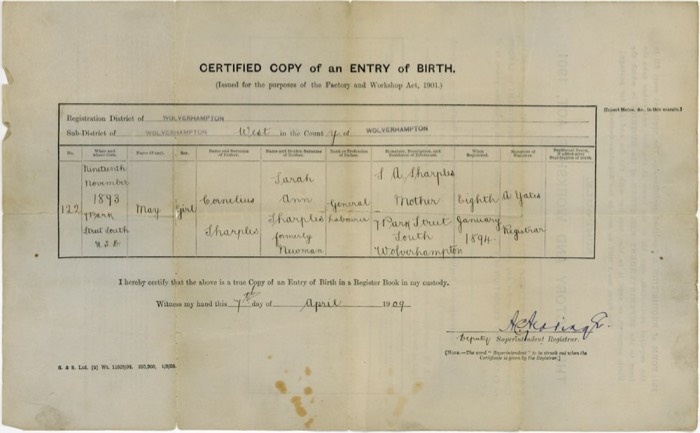 CERTIFIED COPY of an ENTRY of BIRTH.
(Issued for the purposes of the Factory and Workshop Act, 1901.)
Registration District of WOLVERHAMPTON
Sub-District of WOLVERHAMPTON West in the County of WOLVERHAMPTON
No. When and where born. Name if any. Sex. Name and Surname of Father. Name and Maiden Surname of Mother. Rank or Profession of Father. Signature, Description, and Residence of Informant. When Registered. Signature of Registrar.
122
Nineteenth
November
1893
7 Park
Street South
U.S.D.
May
Girl
Cornelius
Sharples
Sarah
Ann
Sharples
formerly
Newman
General
Labourer
S A Sharples
Mother
7 Park Street
South
Wolverhampton
Eighth
January
1894
A Yates
Registrar
I hereby certify that the above is a true Copy of an Entry of Birth in a Register Book in my custody.
Witness my hand this 7th day of April 1909
Deputy Superintendent Registrar.
[NOTE.—The word "Superintendent" to be struck out when the
Certificate is given by the Registrar.]